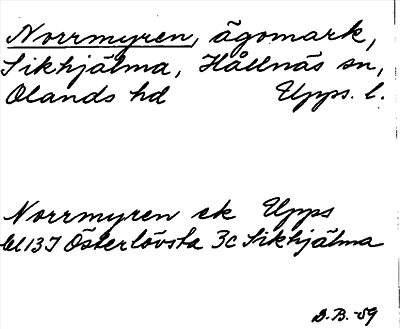 Norrmyren, ägomark,
Sikhjälma, Hållnäs sn,
Olands hd Upps. l.
Norrmyren ek Upps
bl 13I Österlövsta 3c Sikhjälma
D.B. -59